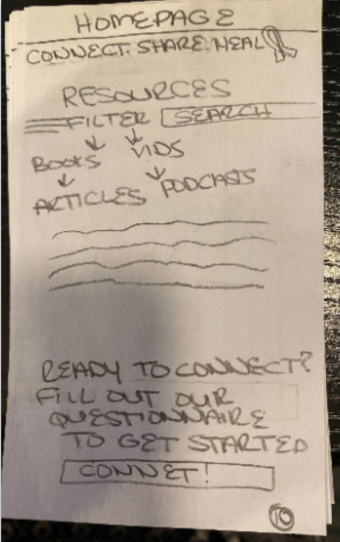 HOMEPAGE
CONNECT. SHARE. HEAL
RESOURCES
FILTER SEARCH
BOOKS VIDS
ARTICLES PODCASTS
READY TO CONNECT?
FILL OUT OUR
QUESTIONNAIRE
TO GET STARTED
CONNET!
10